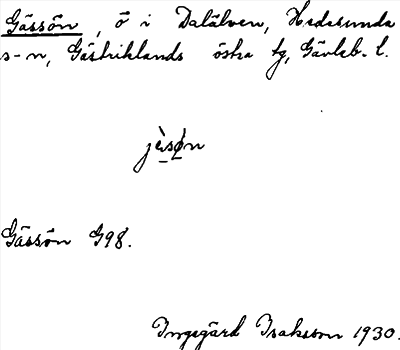 Gässön, ö i Dalälven, Hedesunda
s-n, Gästriklands östra tg, Gävleb. l.
jὲsøn
Gässön G98.
Ingegärd Isaksson 1930.